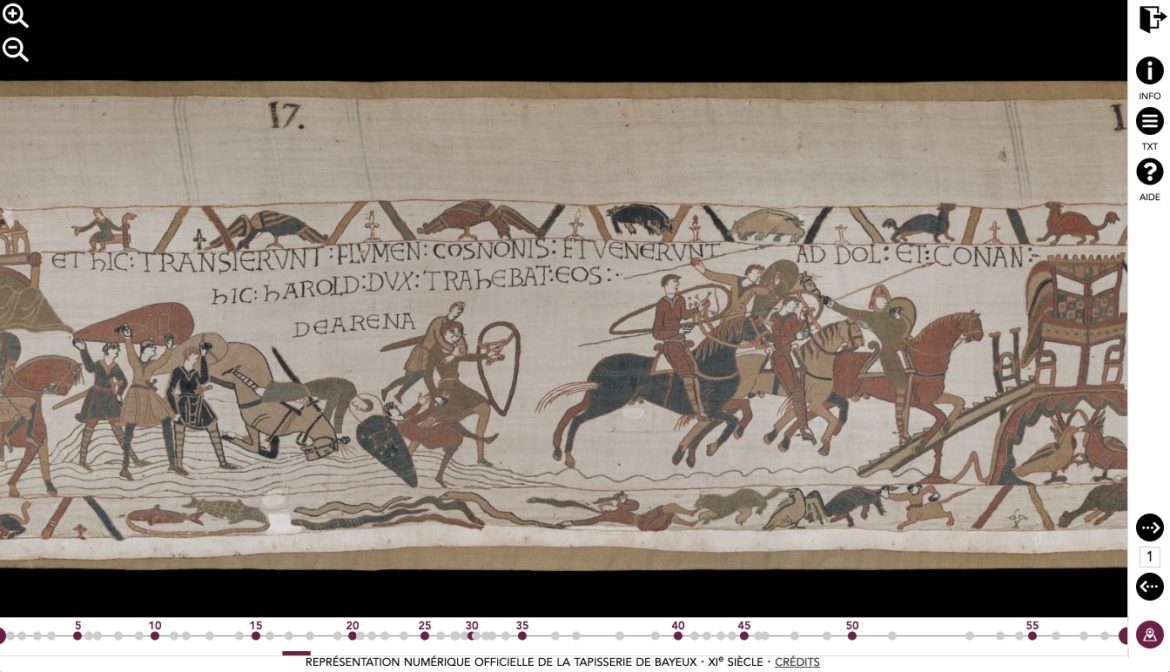 17.
1
ET hIC: TRANSIERVNT: FLVMEN: COSNONIS: ET VENERVNT AD DOL: ET: CONAN:-
hIC: hAROLD: DVX: TRAhEBAT: EOS:·
DE ARENA
INFO
TXT
AIDE
1
5 10 15 20 25 30 35 40 45 50 55
REPRÉSENTATION NUMÉRIQUE OFFICIELLE DE LA TAPISSERIE DE BAYEUX · XIᵉ SIÈCLE · CRÉDITS